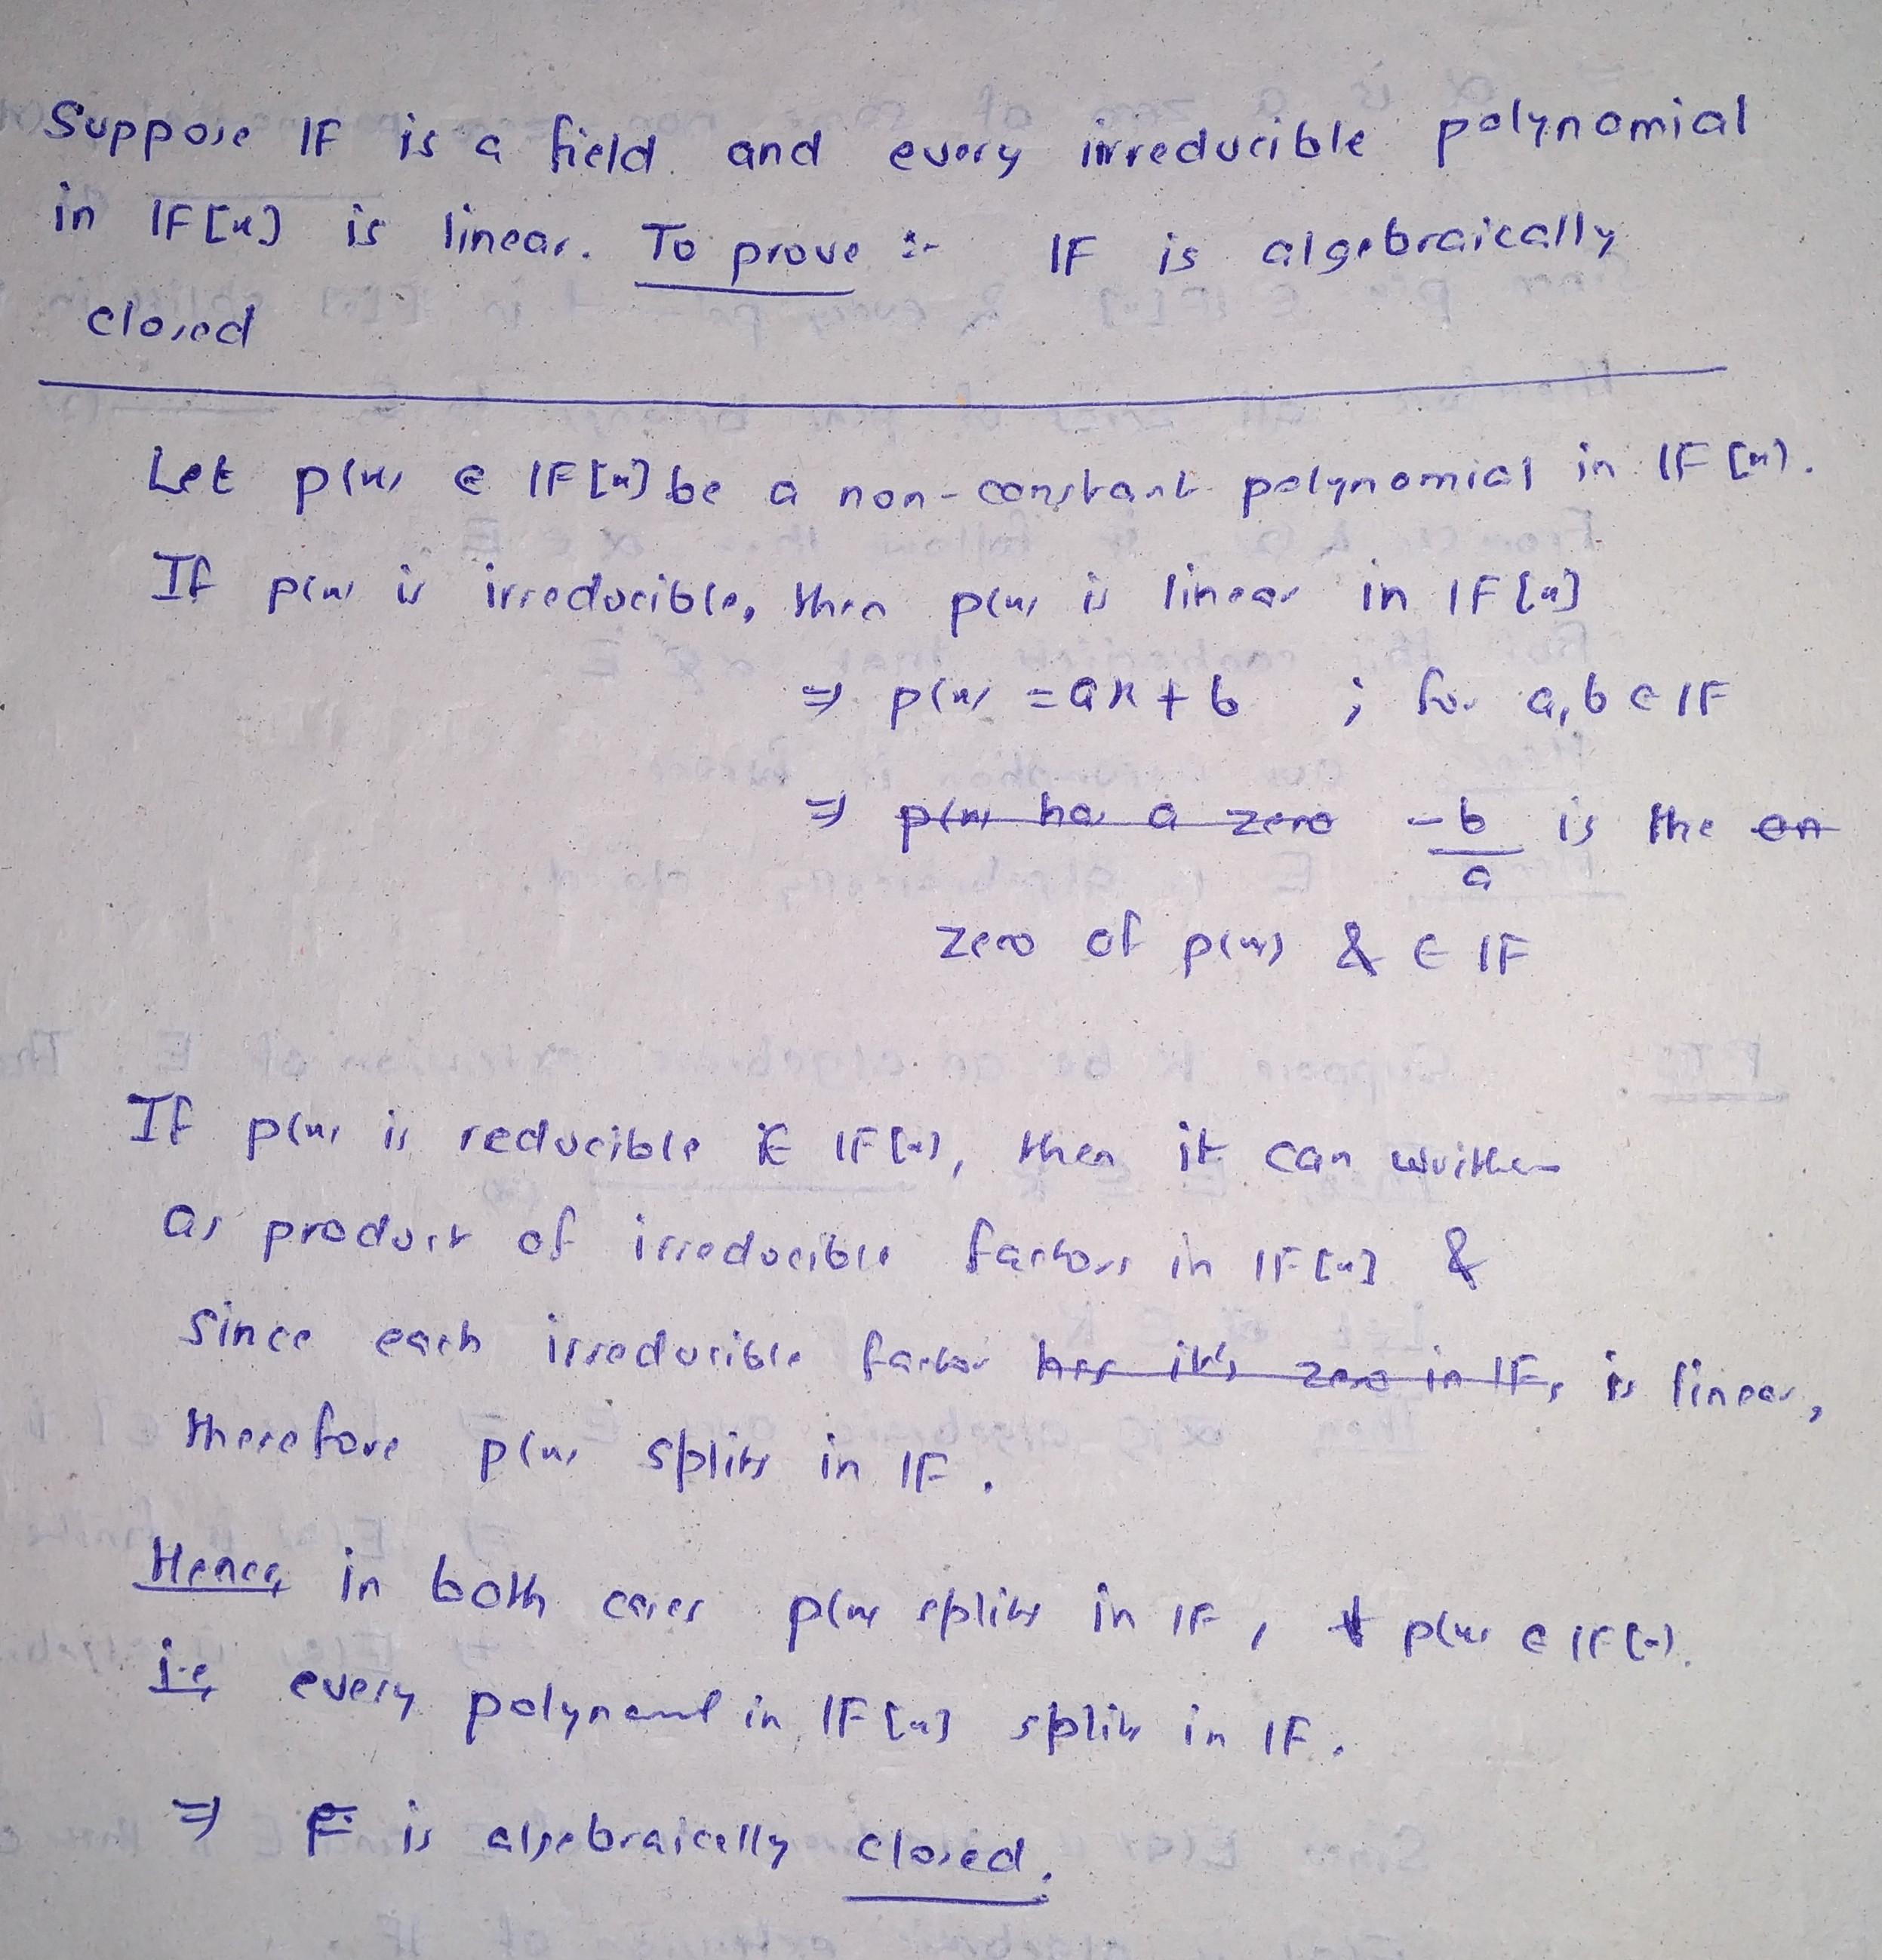 Suppose IF is a field and every irreducible polynomial
in IF[x] is linear. To prove :- IF is algebraically
closed
Let p(x) ∈ IF[x] be a non-constant polynomial in IF[x].
If p(x) is irreducible, then p(x) is linear in IF[x]
⇒ p(x) = ax + b ; for a, b ∈ IF
⇒ p(x) has a zero -b/a is the on
zero of p(x) & ∈ IF
If p(x) is reducible ∈ IF[x], then it can written
as product of irreducible factors in IF[x] &
since each irreducible factor has it's zero in IF, is linear,
therefore p(x) splits in IF.
Hence, in both cases p(x) splits in IF, ∀ p(x) ∈ IF[x].
i.e, every polynomial in IF[x] splits in IF.
⇒ F is algebraically closed.